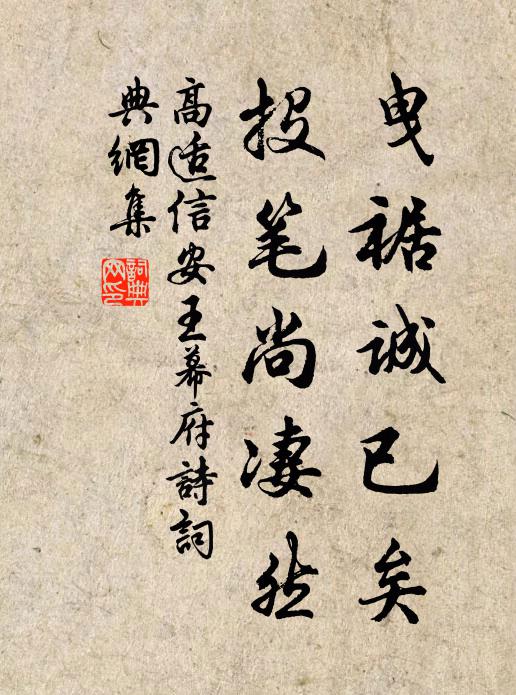 曳裾诚已矣
投笔尚凄然
高适信安王幕府詩詞
典網集
詞典网印